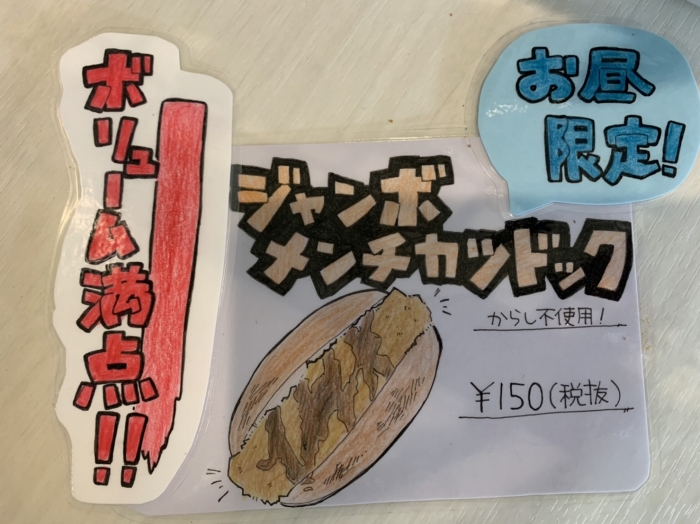 ボリューム満点!!
お昼
限定!
ジャンボ
メンチカツドック
からし不使用!
¥150(税抜)